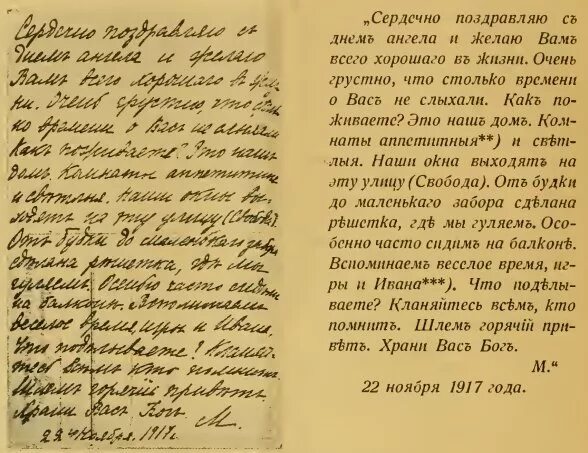 Сердечно поздравляю съ
Днемъ ангела и желаю
Вамъ всего хорошаго въ жиз-
ни. Очень грустно, что столь-
ко времени о Васъ не слыхали.
Какъ поживаете? Это нашъ
домъ. Комнаты аппетитныя
и свѣтлыя. Наши окна вы-
ходятъ на эту улицу (Свобода).
Отъ будки до маленькаго забора
сдѣлана рѣшетка, гдѣ мы
гуляемъ. Особенно часто сидимъ
на балконѣ. Вспоминаемъ
веселое время, игры и Ивана.
Что подѣлываете? Кланяй-
тесь всѣмъ кто помнитъ.
Шлемъ горячій привѣтъ.
Храни Васъ Богъ.
М.
22го Ноября. 1917 г.
„Сердечно поздравляю съ
днемъ ангела и желаю Вамъ
всего хорошаго въ жизни. Очень
грустно, что столько времени
о Васъ не слыхали. Какъ по-
живаете? Это нашъ домъ. Ком-
наты аппетитныя**) и свѣт-
лыя. Наши окна выходятъ на
эту улицу (Свобода). Отъ будки
до маленькаго забора сдѣлана
рѣшетка, гдѣ мы гуляемъ. Осо-
бенно часто сидимъ на балконѣ.
Вспоминаемъ веселое время, иг-
ры и Ивана***). Что подѣлы-
ваете? Кланяйтесь всѣмъ, кто
помнитъ. Шлемъ горячій при-
вѣтъ. Храни Васъ Богъ.
М.“
22 ноября 1917 года.